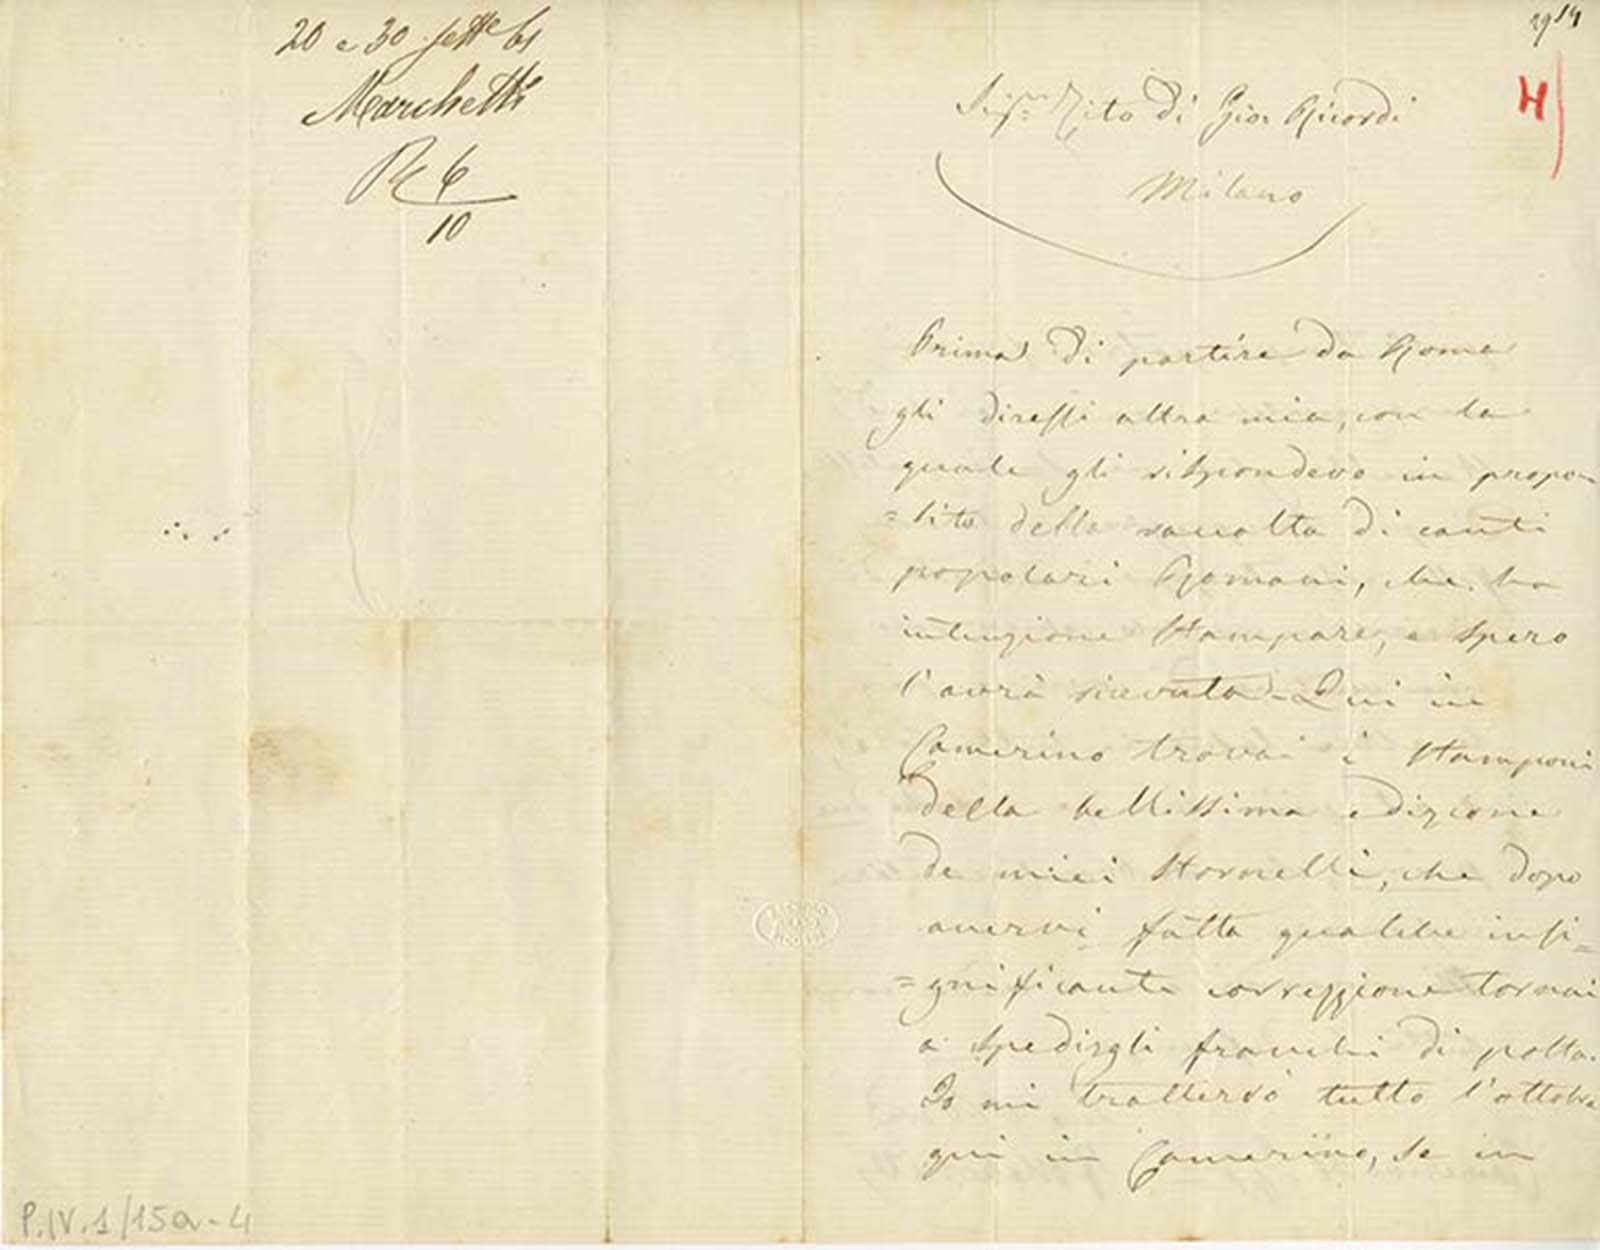 20 e 30 sette 61
Marchetti
R 6
10
P.IV.1/15a-4
H
Sigr Tito di Gio. Ricordi
Milano
Prima di partire da Roma
gli diressi altra mia, con la
quale gli rispondevo in propo-
=sito della raccolta di canti
popolari Romani, che ha
intenzione stampare, e spero
l'avrà ricevuta - Qui in
Camerino trovai i stamponi
della bellissima edizione
de miei stornelli, che dopo
avervi fatta qualche insi=
=gnificante correzzione tornai
a spedirgli franchi di posta.
Io mi tratterrò tutto l'ottobre
qui in Camerino, se in